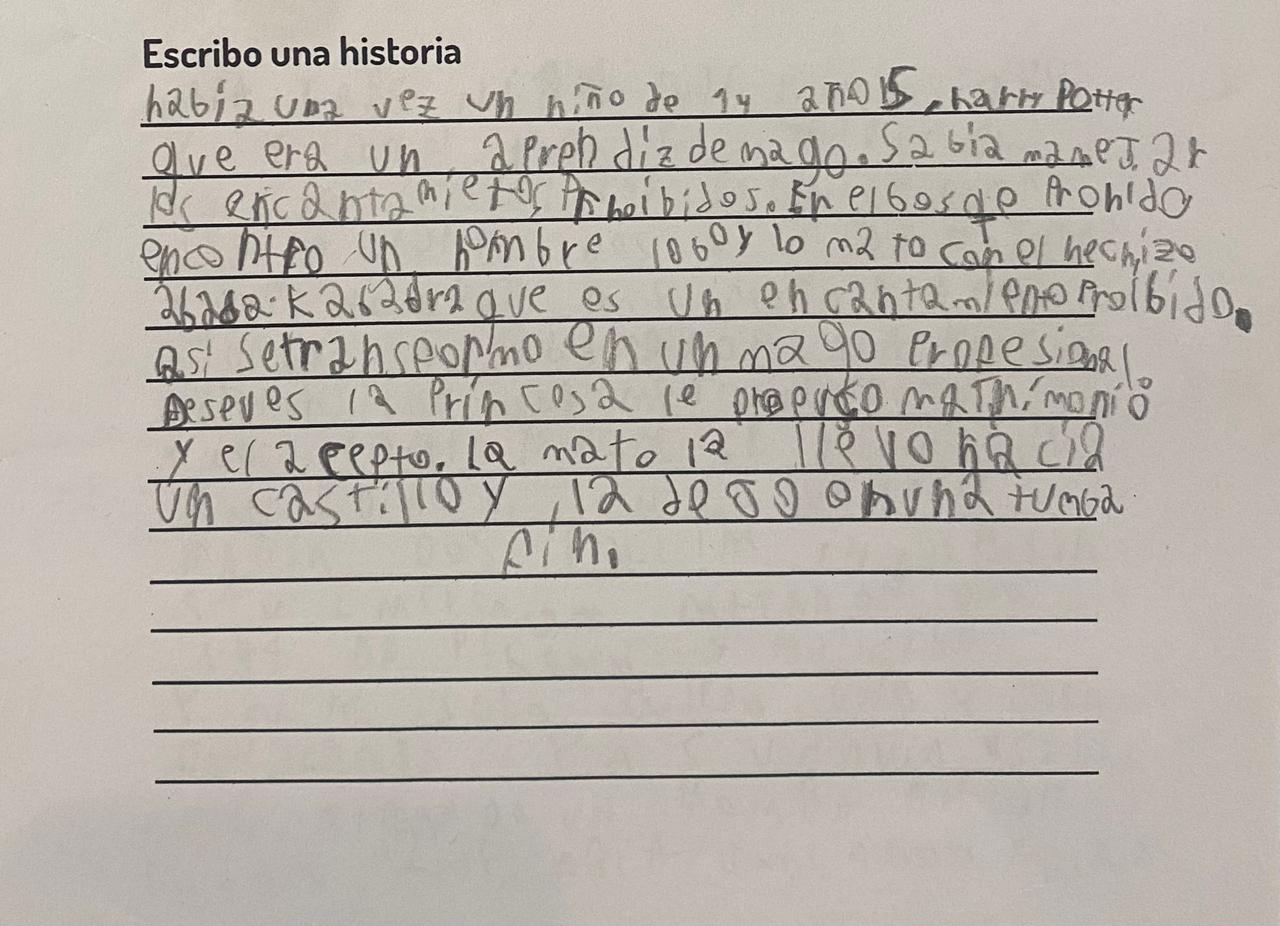 Escribo una historia
había una vez un niño de 14 años, harry Potter
que era un aprendiz de mago. Sabia manejar
los encantamietos Prhoibidos. En el bosqe Prohido
encontro un hombre lobo y lo mato con el hechizo
abada. Kabadra que es un encantamiento Proibido.
asi se transformo en un mago profesional.
Deseves la Princesa le propuso matrimonio
y el acepto. la mato la llevo hacia
un castillo y, la dejo en una tumba
fin.